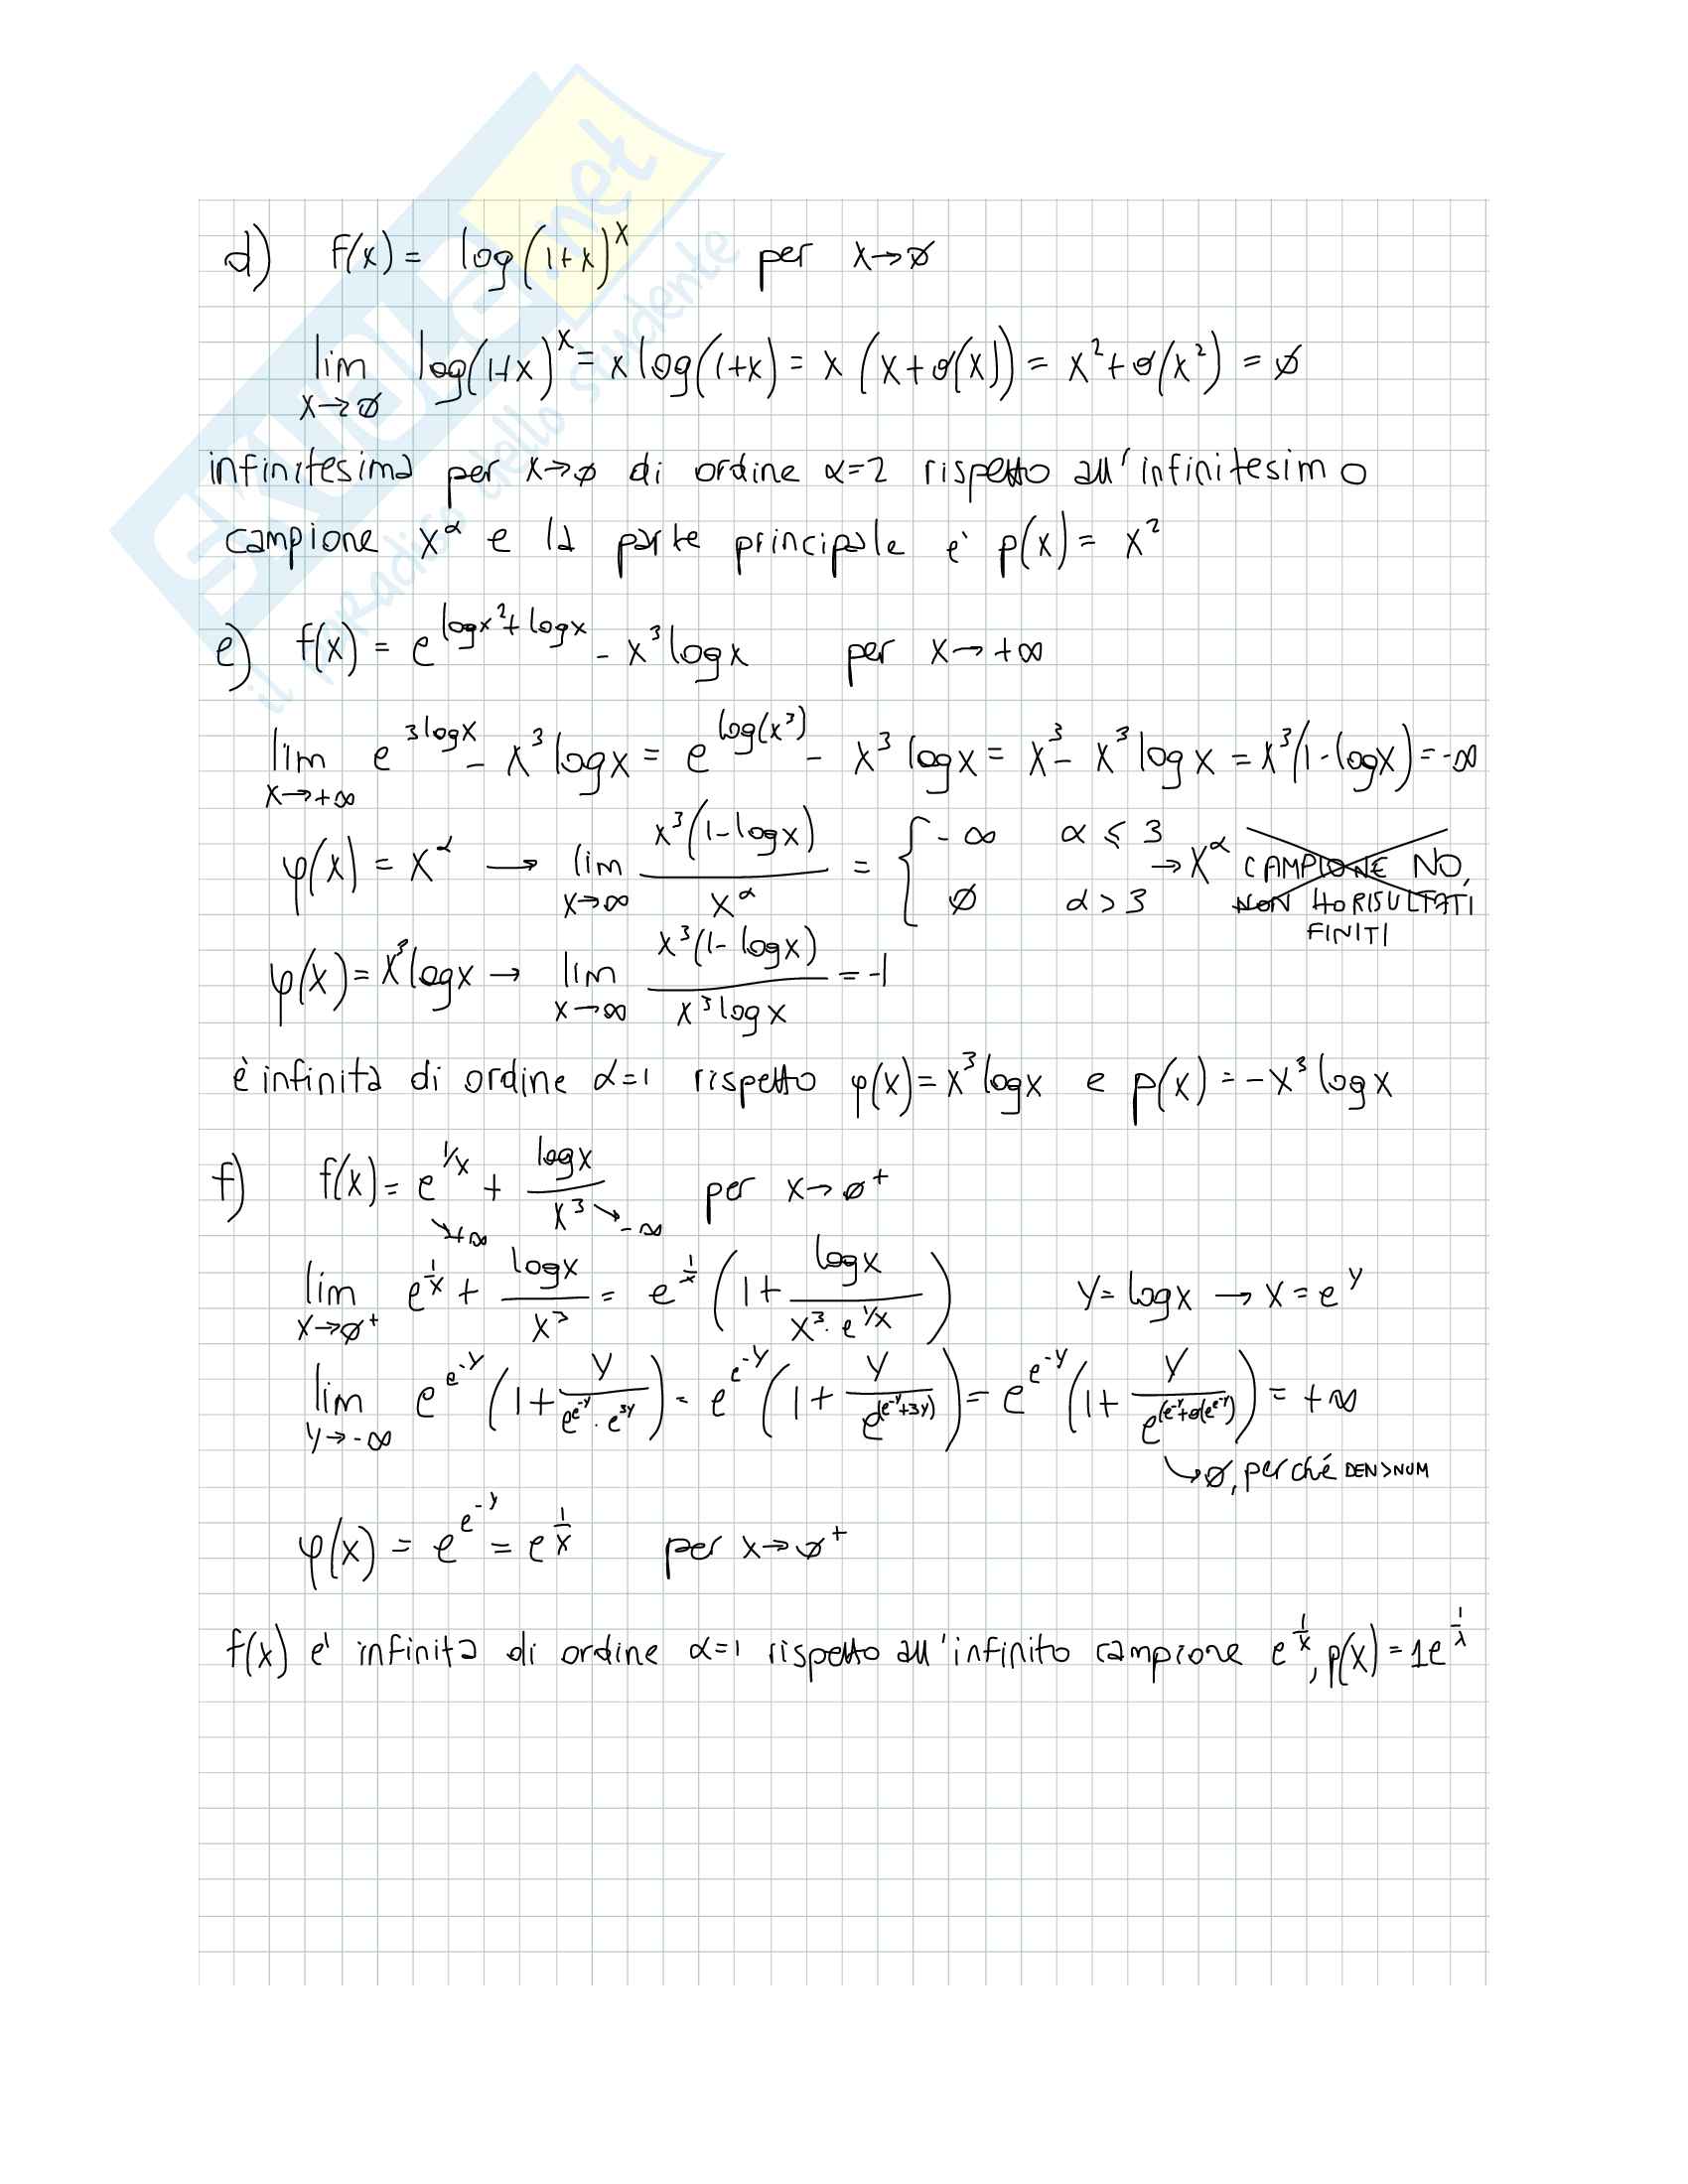 d) f(x) = log(1+x)^x per x→0
lim x→0 log(1+x)^x = x log(1+x) = x (x+o(x)) = x²+o(x²) = 0
infinitesima per x→0 di ordine α=2 rispetto all'infinitesimo
campione x^α e la parte principale e' p(x) = x²
e) f(x) = e^(logx²+logx) - x³logx per x→+∞
lim x→+∞ e^(3logx) - x³logx = e^(log(x³)) - x³logx = x³ - x³logx = x³(1-logx) = -∞
φ(x) = x^α → lim x→∞ x³(1-logx)/x^α = { -∞ α ≤ 3 0 α > 3 → x^α CAMPIONE NO,
NON HO RISULTATI
FINITI
φ(x) = x³logx → lim x→∞ x³(1-logx)/x³logx = -1
è infinita di ordine α=1 rispetto φ(x) = x³logx e p(x) = -x³logx
f) f(x) = e^(1/x) + logx/x³ per x→0⁺
→+∞ →-∞
lim x→0⁺ e^(1/x) + logx/x³ = e^(1/x) (1 + logx/(x³·e^(1/x))) y = logx → x = e^y
lim y→-∞ e^(e^(-y)) (1 + y/(e^(e^(-y))·e^(3y))) = e^(e^(-y)) (1 + y/e^(e^(-y)+3y)) = e^(e^(-y)) (1 + y/e^(e^(-y)+o(e^(-y)))) = +∞
→0, perché DEN>NUM
φ(x) = e^(e^(-y)) = e^(1/x) per x→0⁺
f(x) e' infinita di ordine α=1 rispetto all'infinito campione e^(1/x), p(x) = 1e^(1/x)
SKUOLA.net
il paradiso dello studente